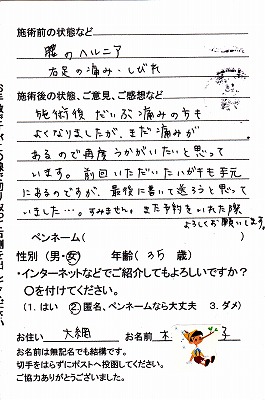 施術前の状態など
腰のヘルニア
右足の痛み・しびれ
施術後の状態、ご意見、ご感想など
施術後だいぶ痛みの方も
よくなりましたが、まだ痛みが
あるので再度うかがいたいと思って
います。前回いただいたハガキも手元
にあるのですが、最後に書いて送ろうと思って
いました…。すみません。また予約をいれた際
よろしくお願いします。
ペンネーム( )
性別(男・女) 年齢(35歳)
・インターネットなどでご紹介してもよろしいですか?
○を付けてください。
(1. はい ②匿名、ペンネームなら大丈夫 3. ダメ)
お住い 大網 お名前 木 子
お名前は無記名でも結構です。
切手をはらずにポストへ投函してください。
ご協力ありがとうございました。